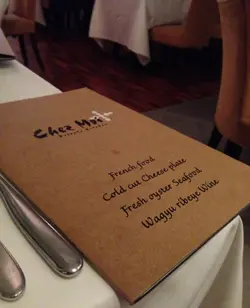 Chez
French food
Cold cut Cheese plate
Fresh oyster Seafood
Wagyu ribeye Wine